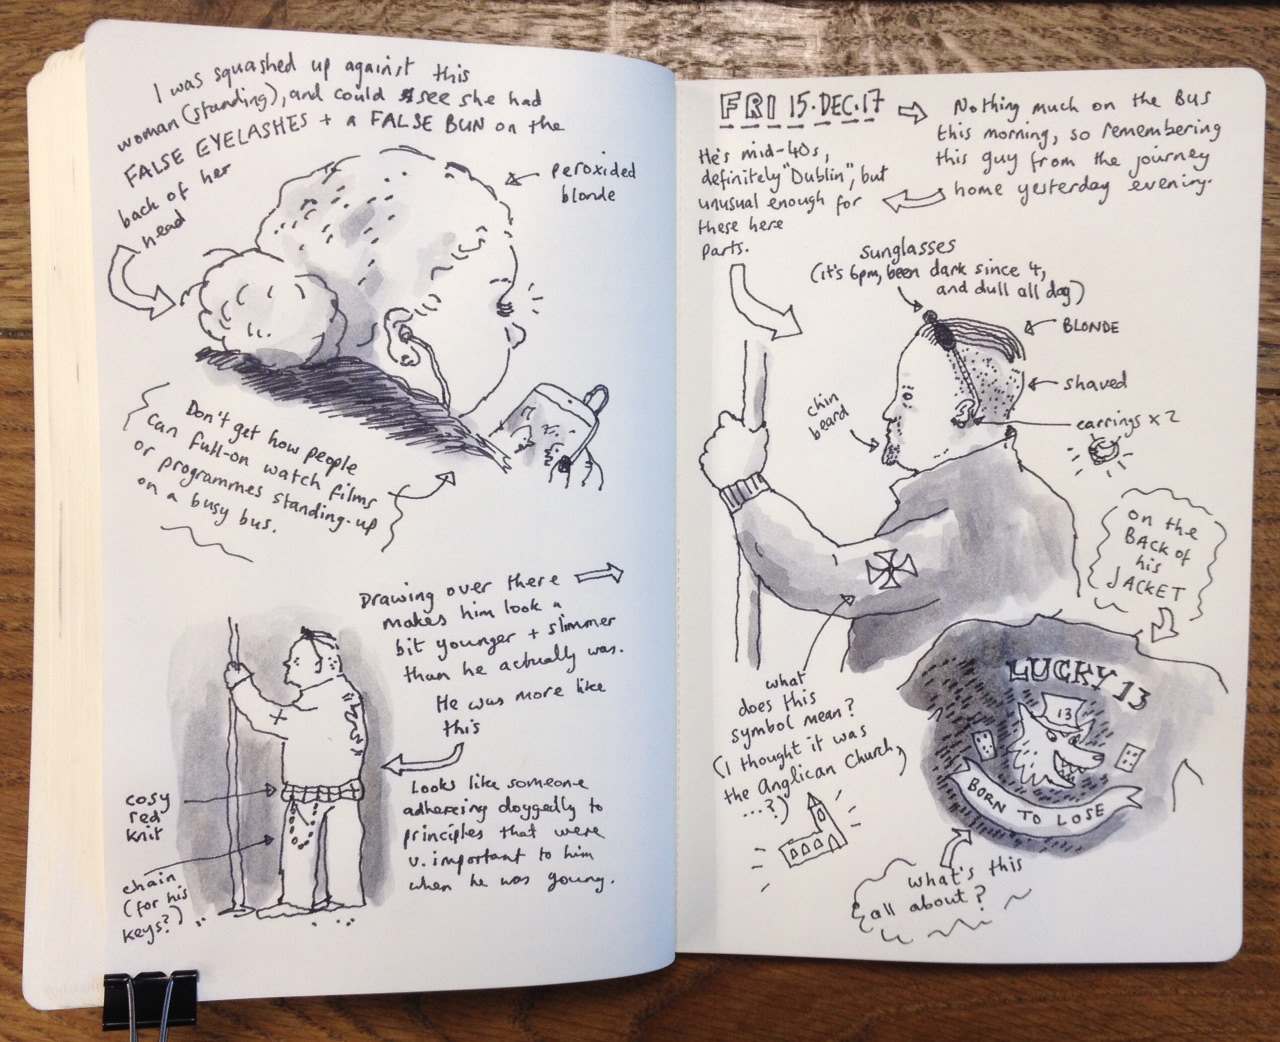 I was squashed up against this
woman (standing), and could see she had
FALSE EYELASHES + a FALSE BUN on the
back of her
head
peroxided
blonde
Don't get how people
can full-on watch films
or programmes standing-up
on a busy bus.
Drawing over there
makes him look a
bit younger + slimmer
than he actually was.
He was more like
this
cosy
red
knit
chain
(for his
keys?)
Looks like someone
adhereing doggedly to
principles that were
v. important to him
when he was young.
FRI 15.DEC.17
Nothing much on the Bus
this morning, so remembering
this guy from the journey
home yesterday evening.
He's mid-40s,
definitely "Dublin", but
unusual enough for
these here
parts.
sunglasses
(it's 6pm, been dark since 4,
and dull all day)
BLONDE
shaved
earrings x 2
chin
beard
on the
BACK of
his
JACKET
what
does this
symbol mean?
(I thought it was
the Anglican Church,
...?)
LUCKY 13
13
BORN TO LOSE
what's this
all about?